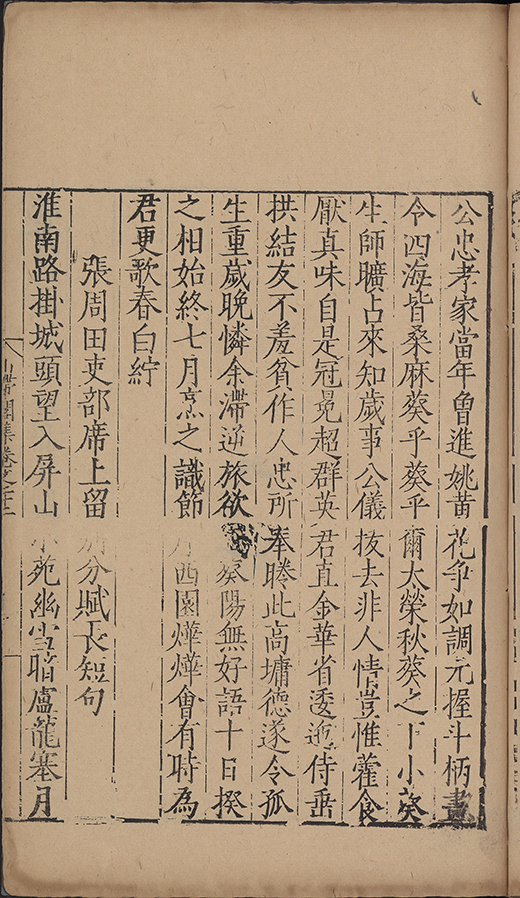 公忠孝家當年曾進姚黃花爭如調元握斗柄晝
令四海皆桑麻葵乎葵乎爾太榮秋葵之下小葵
生師曠占來知歲事公儀拔去非人情豈惟藿食
厭真味自是冠冕超群英君直金華省逶迤侍垂
拱結友不羞貧作人忠所奉睠此高墉德遂令孤
生重歲晚憐余滯逆旅欲葵陽無好語十日揆
之相始終七月烹之識節西園燁燁會有時為
君更歌春白紵
張周田吏部席上留別分賦長短句
淮南路掛城頭望入屏山小苑幽雪暗盧龍塞月
集卷之十三